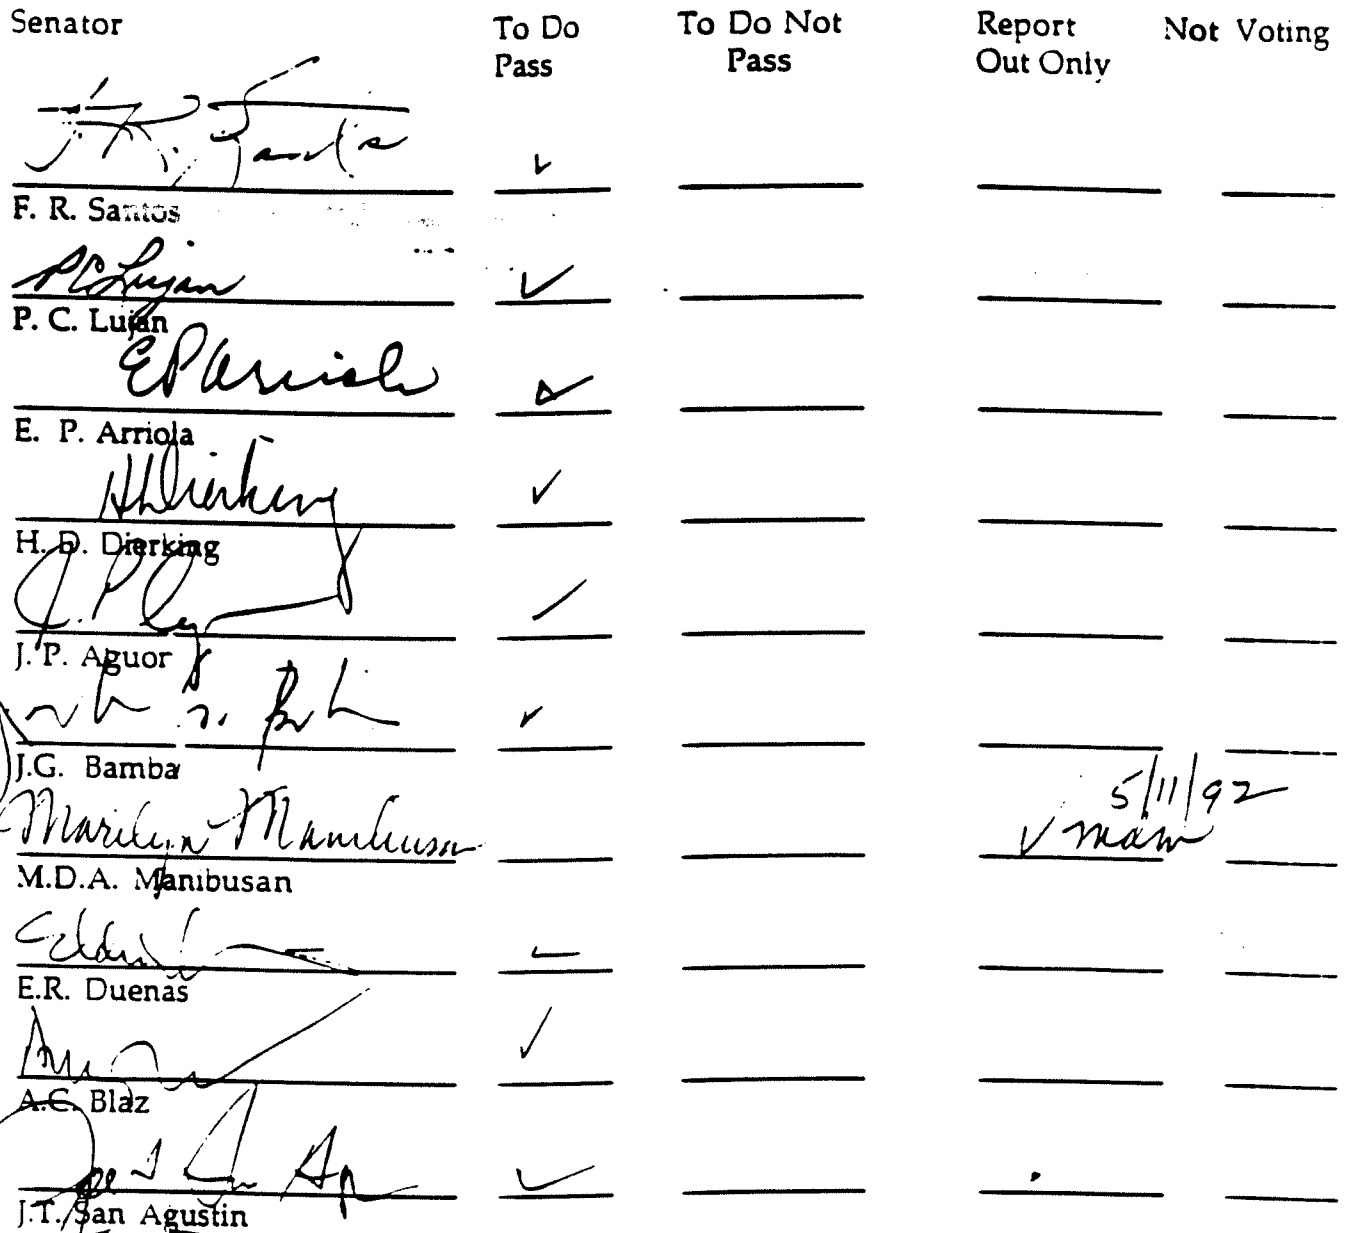 Senator To Do Pass To Do Not Pass Report Out Only Not Voting
F. R. Santos
PC Lujan
P. C. Lujan
EP Arriola
E. P. Arriola
H. D. Dierking
J. P. Aguor
J.G. Bamba
5/11/92
Marilyn Manibusan ✓ mam
M.D.A. Manibusan
E.R. Duenas
A.C. Blaz
J.T. San Agustin